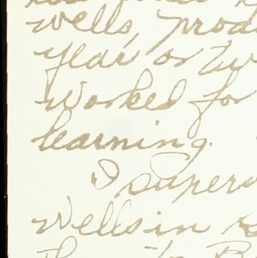 wells, prod
year or tw
worked for
learning.
I superv
wells in